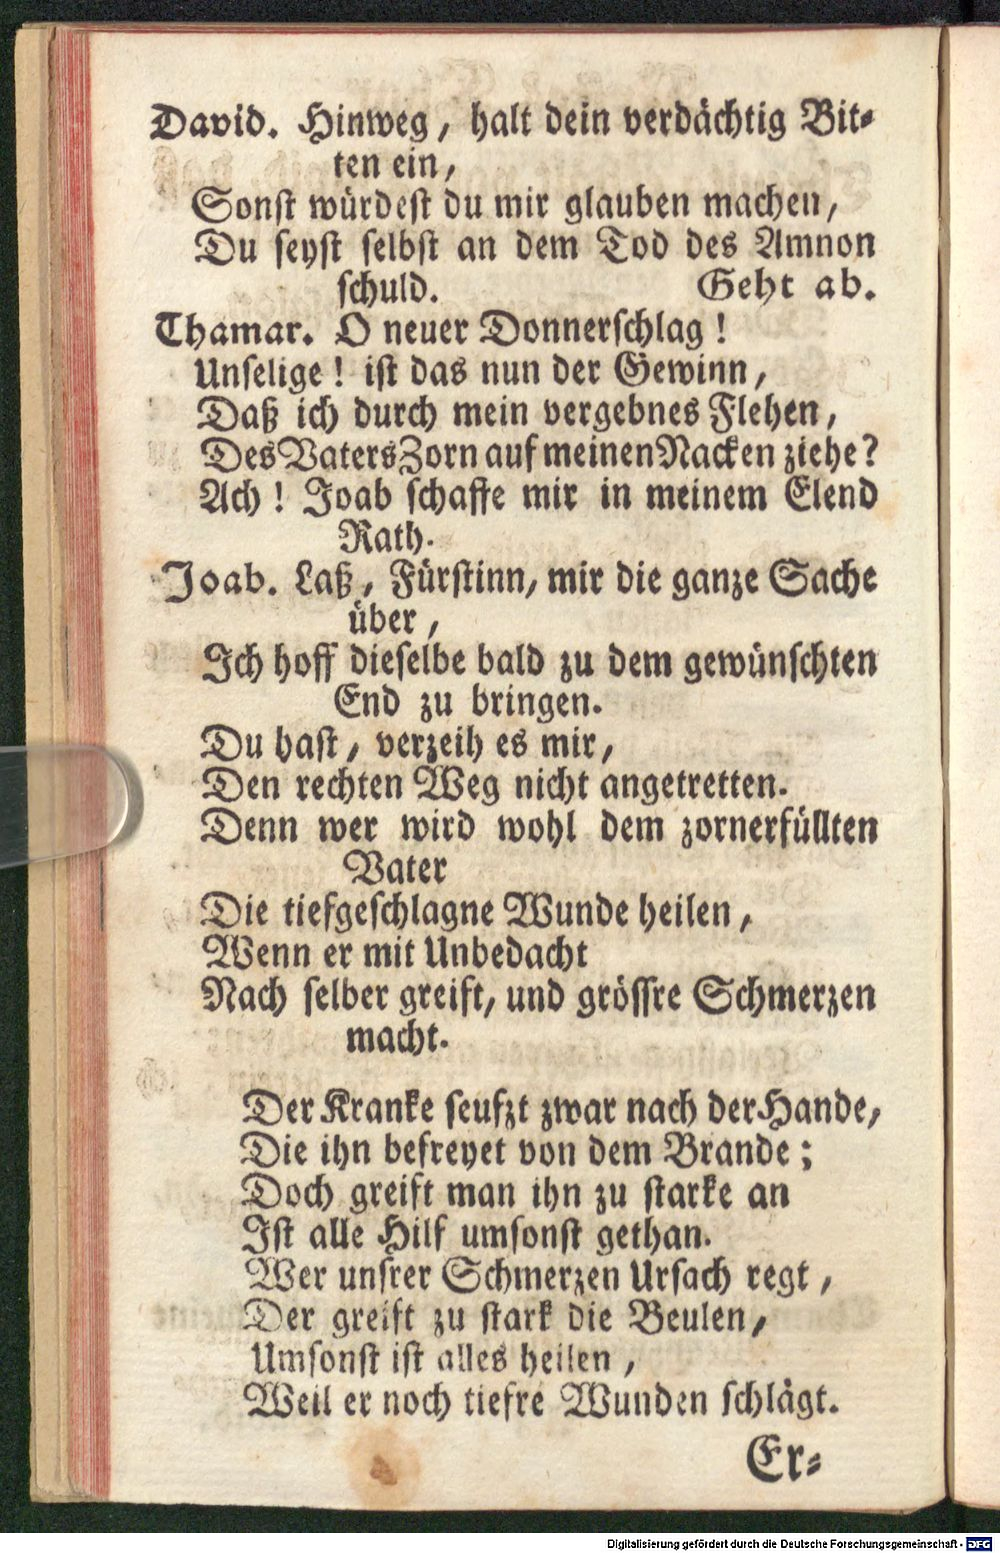 David. Hinweg, halt dein verdächtig Bit-
ten ein,
Sonst würdest du mir glauben machen,
Du seyst selbst an dem Tod des Amnon
schuld. Geht ab.
Thamar. O neuer Donnerschlag!
Unselige! ist das nun der Gewinn,
Daß ich durch mein vergebnes Flehen,
Des Vaters Zorn auf meinen Nacken ziehe?
Ach! Joab schaffe mir in meinem Elend
Rath.
Joab. Laß, Fürstinn, mir die ganze Sache
über,
Ich hoff dieselbe bald zu dem gewünschten
End zu bringen.
Du hast, verzeih es mir,
Den rechten Weg nicht angetretten.
Denn wer wird wohl dem zornerfüllten
Vater
Die tiefgeschlagne Wunde heilen,
Wenn er mit Unbedacht
Nach selber greift, und grössre Schmerzen
macht.
Der Kranke seufzt zwar nach der Hande,
Die ihn befreyet von dem Brande;
Doch greift man ihn zu starke an
Ist alle Hilf umsonst gethan.
Wer unsrer Schmerzen Ursach regt,
Der greift zu stark die Beulen,
Umsonst ist alles heilen,
Weil er noch tiefre Wunden schlägt.
Er-
Digitalisierung gefördert durch die Deutsche Forschungsgemeinschaft - DFG